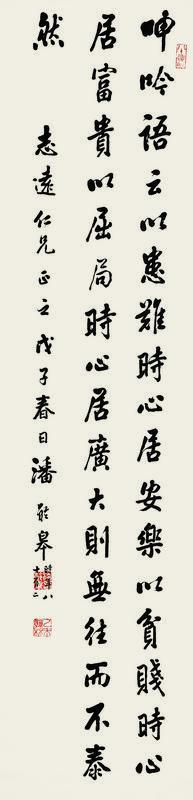 呻吟語云以患難時心居安樂以貧賤時心
居富貴以屈局時心居廣大則無往而不泰
然
志遠仁兄正之戊子春日潘齡皋
時年八
十有二